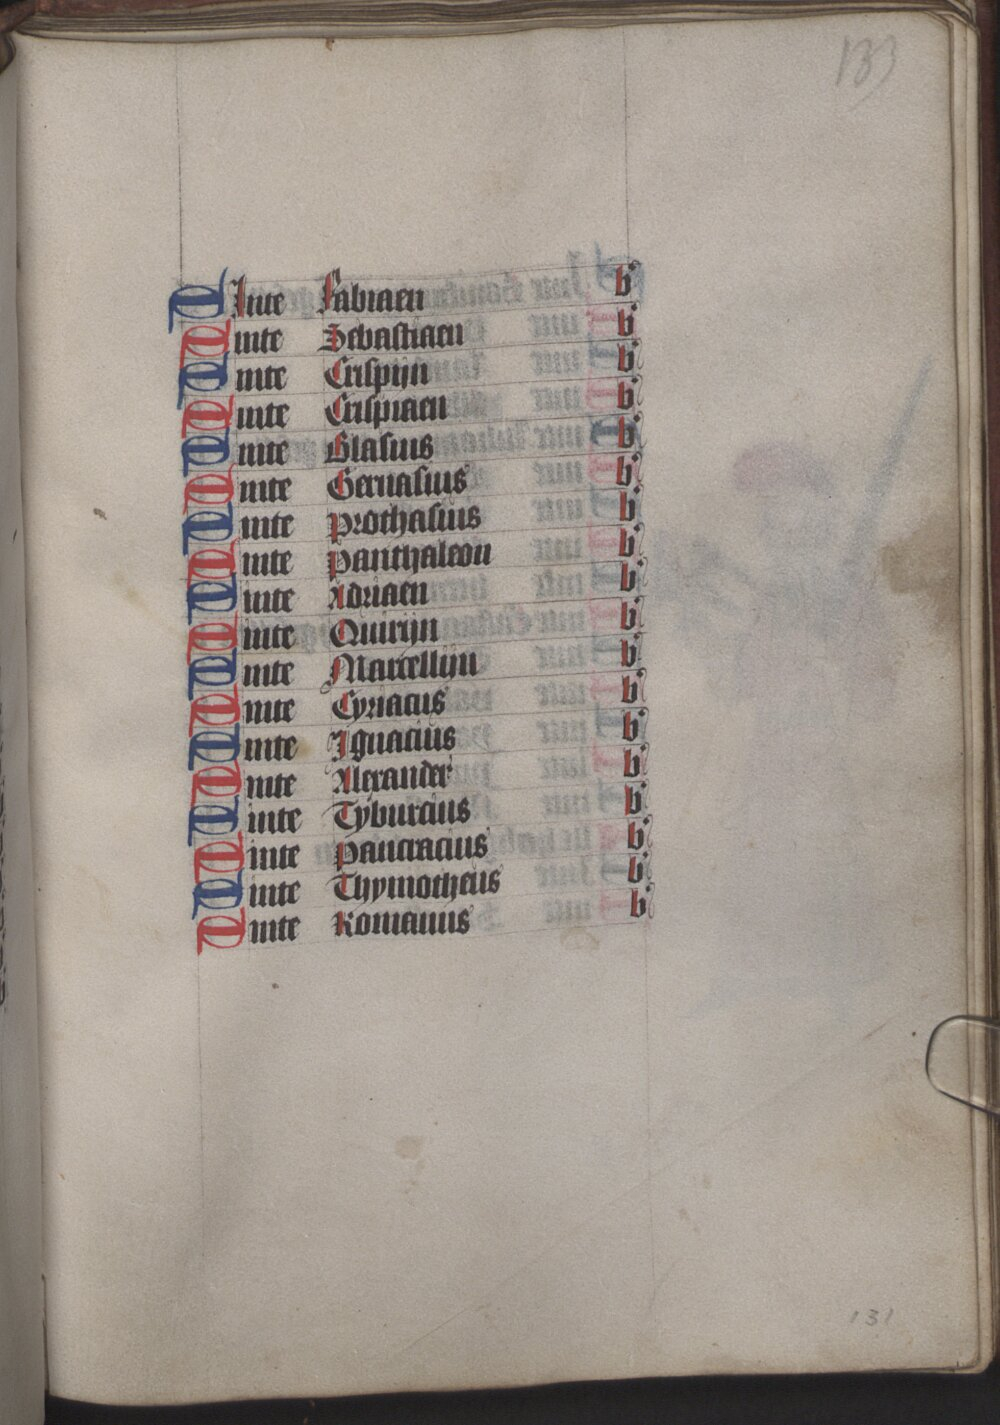 133
Sinte Fabiaen b'
Sinte Sebastiaen b'
Sinte Crispijn b'
Sinte Crispiaen b'
Sinte Blasius b'
Sinte Geruasius b'
Sinte Prothasius b'
Sinte Panthaleon b'
Sinte Adriaen b'
Sinte Quirijn b'
Sinte Marcellijn b'
Sinte Cyriacus b'
Sinte Ignacius b'
Sinte Alexander b'
Sinte Tyburcius b'
Sinte Pancracius b'
Sinte Thymotheus b'
Sinte Romanus b'
131